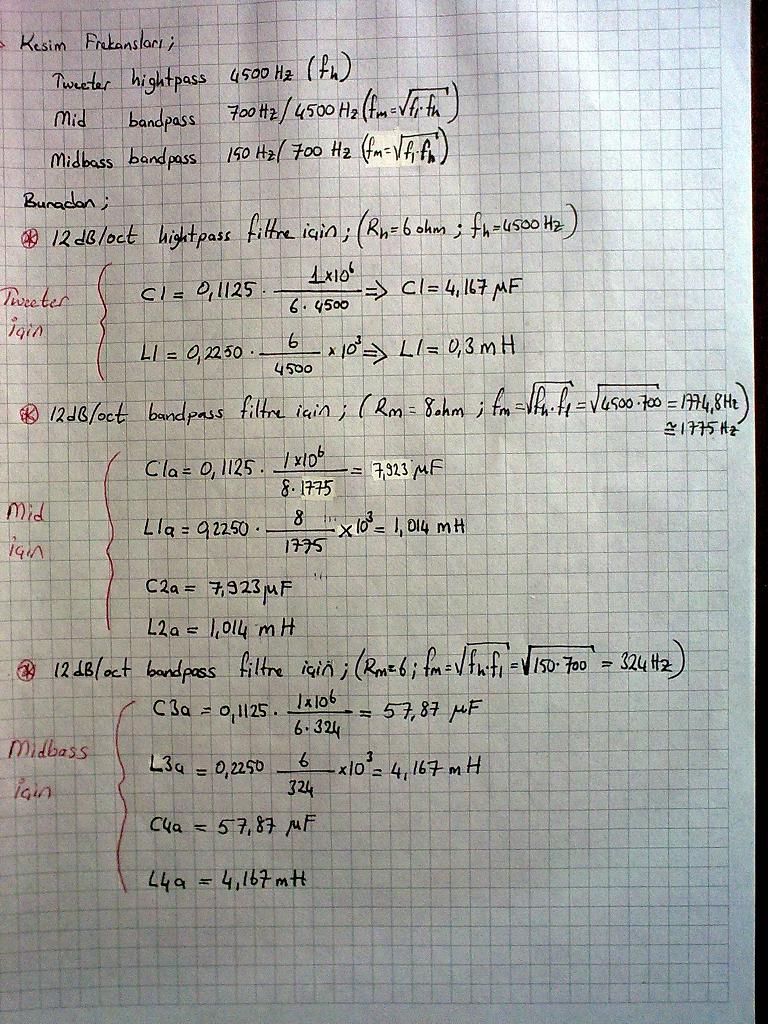 Kesim Frekansları;
Tweeter hightpass 4500 Hz (fh)
Mid bandpass 700 Hz / 4500 Hz (fm=√f1.fh)
Midbass bandpass 150 Hz / 700 Hz (fm=√f1.fh)
Buradan;
* 12dB/oct hightpass filtre için; (Rh=6 ohm; fh=4500 Hz)
Tweeter için
C1 = 0,1125 . 1x10⁶ / 6.4500 => C1 = 4,167 µF
L1 = 0,2250 . 6 / 4500 x 10³ => L1 = 0,3 mH
* 12dB/oct bandpass filtre için; (Rm = 8ohm; fm=√fh.f1 = √4500.700 = 1774,8Hz)
≅ 1775 Hz
Mid için
C1a = 0,1125 . 1x10⁶ / 8.1775 = 7,923 µF
L1a = 0,2250 . 8 / 1775 x 10³ = 1,014 mH
C2a = 7,923 µF
L2a = 1,014 mH
* 12dB/oct bandpass filtre için; (Rm=6; fm=√fh.f1 = √150.700 = 324 Hz)
Midbass için
C3a = 0,1125 . 1x10⁶ / 6.324 = 57,87 µF
L3a = 0,2250 6 / 324 x10³ = 4,167 mH
C4a = 57,87 µF
L4a = 4,167 mH